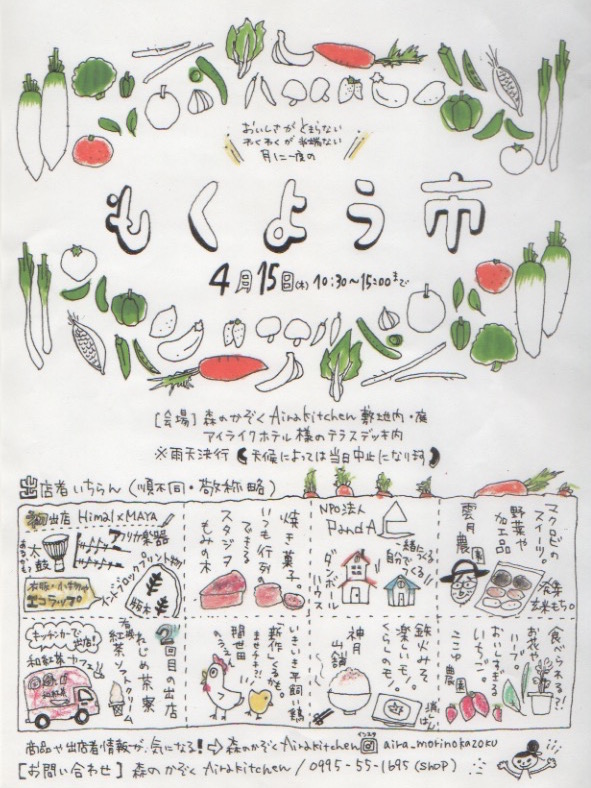 おいしさがとまらない
わくわくが半端ない
月に一度の
もくよう市
4月15日(木) 10:30〜15:00まで
[会場] 森のかぞくAirakitchen 敷地内・庭
アイライクホテル様のテラスデッキ内
※雨天決行(天候によっては当日中止になり〼)
出店者いちらん(順不同・敬称略)
マクロビの
スイーツ。
野菜や
加工品
雲月農園
食養
玄米もち。
NPO法人
PandA
一緒につくる
自分でつくる!!
ダンボール
ハウス
焼き菓子。
いつも行列の
できる
スタジヲ
もみの木
初出店 Himal×MAYA
アフリカ楽器
太鼓
インドブロックプリント布物
版木
衣版・小物や
エコラップ
食べられる?!
お花や
ハーブ。
おいしすぎる
いちご。
ここく農園
鉄火みそ。
楽しいモノ。
くらしのモノ。
神月
山舗
いきいき平飼い鶏
「新作」くるも
ませチキ?!
間世田
のうえん
2回目の出店
ねじめ茶寮
有機
紅茶ソフトクリーム
キッチンカーで
出店!
和紅茶カフェ
商品や出店者情報が、気になる!⇨森のかぞくAirakitchen インスタ aira_morinokazoku
[お問い合わせ] 森のかぞく Airakitchen / 0995-55-1695 (SHOP)